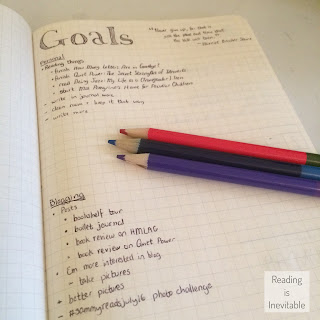 Goals
"Never give up, for that is
just the place and time that
the tide will turn."
- Harriet Beecher Stowe
Personal
- Reading Things
- Finish How Many Letters Are in Goodbye?
- Finish Quiet Power: The Secret Strengths of Introverts
- Read Being Jazz: My Life as a (Transgender) Teen
- Start Miss Peregrine's Home for Peculiar Children
- write in journal more
- clean room + keep it that way
- write more
Blogging
- Posts
• bookshelf tour
• bullet journal
• book review on HMLAG
• book review on Quiet Power
- Get more interested in blog
- take pictures
- better pictures
- #sammyreadsjuly16 photo challenge
Reading
is
Inevitable